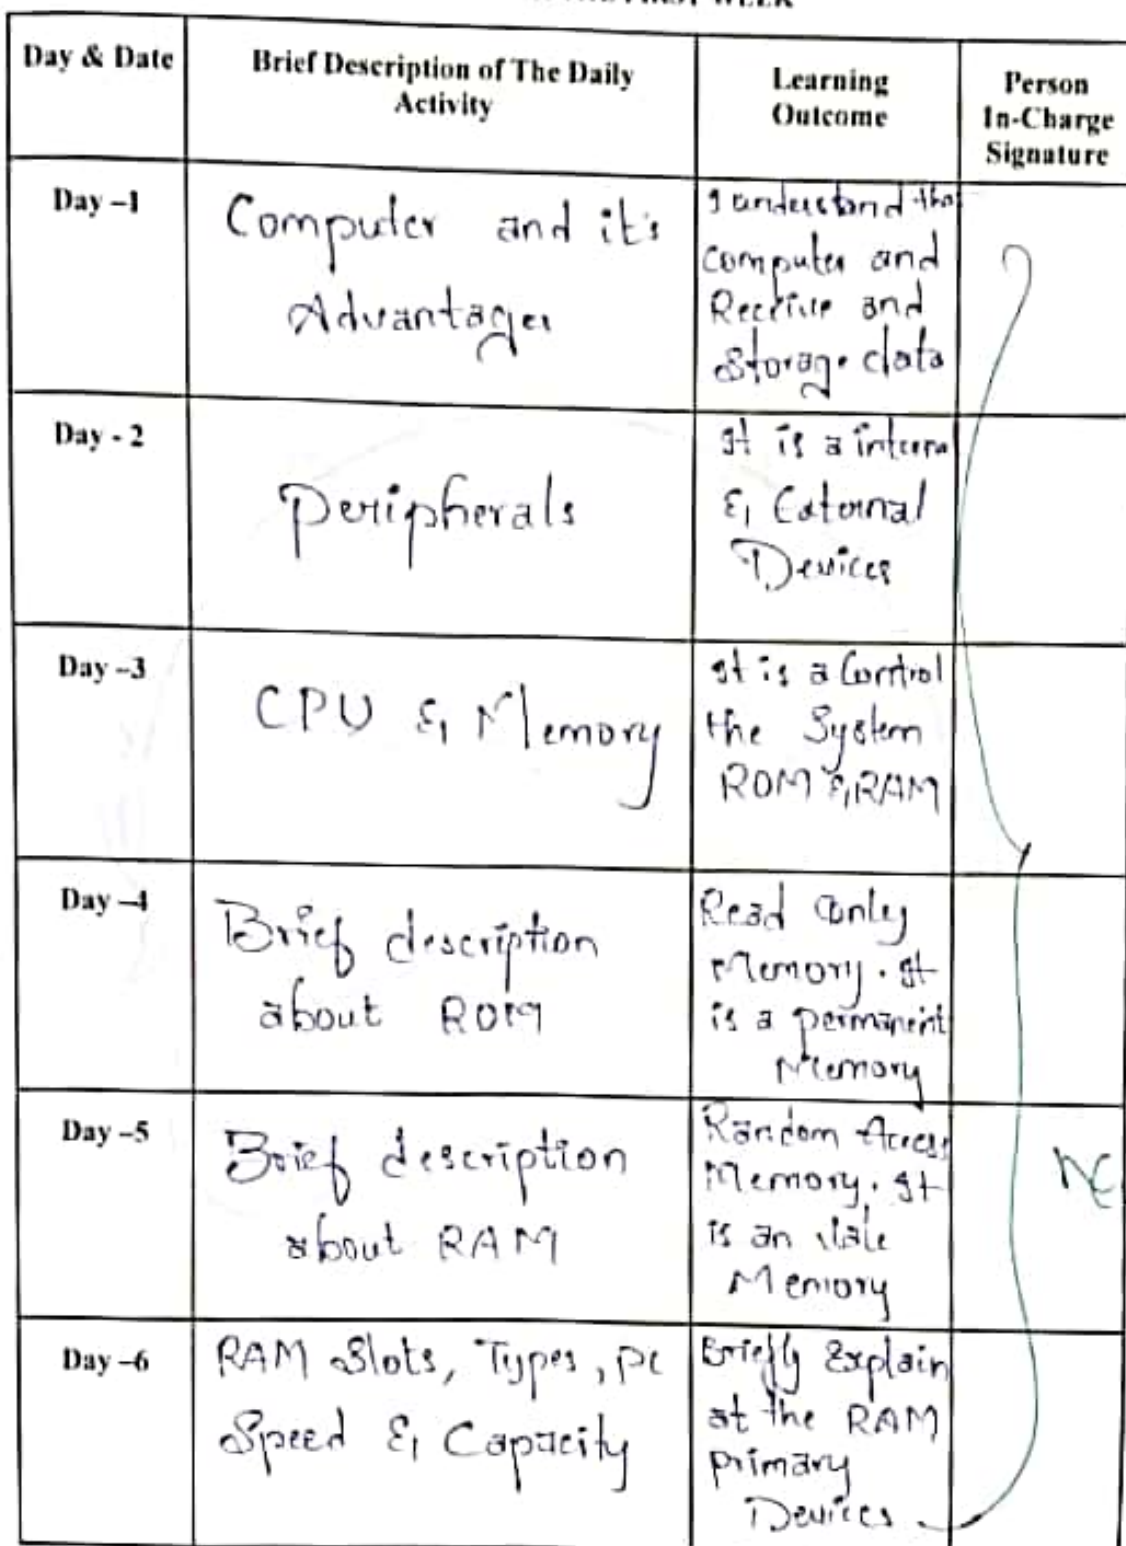 FIRST WEEK
Day & Date
Brief Description of The Daily
Activity
Learning
Outcome
Person
In-Charge
Signature
Day –1
Computer and it's
Advantages
I understand the
computer and
Receive and
Storage data
Day - 2
Peripherals
It is a interna
& External
Devices
Day –3
CPU & Memory
It is a Control
the System
ROM & RAM
Day –4
Brief description
about ROM
Read Only
Memory. It
is a permanent
Memory
Day –5
Brief description
about RAM
Random Access
Memory. It
is an
Memory
Day –6
RAM Slots, Types, PC
Speed & Capacity
Briefly Explain
at the RAM
primary
Devices